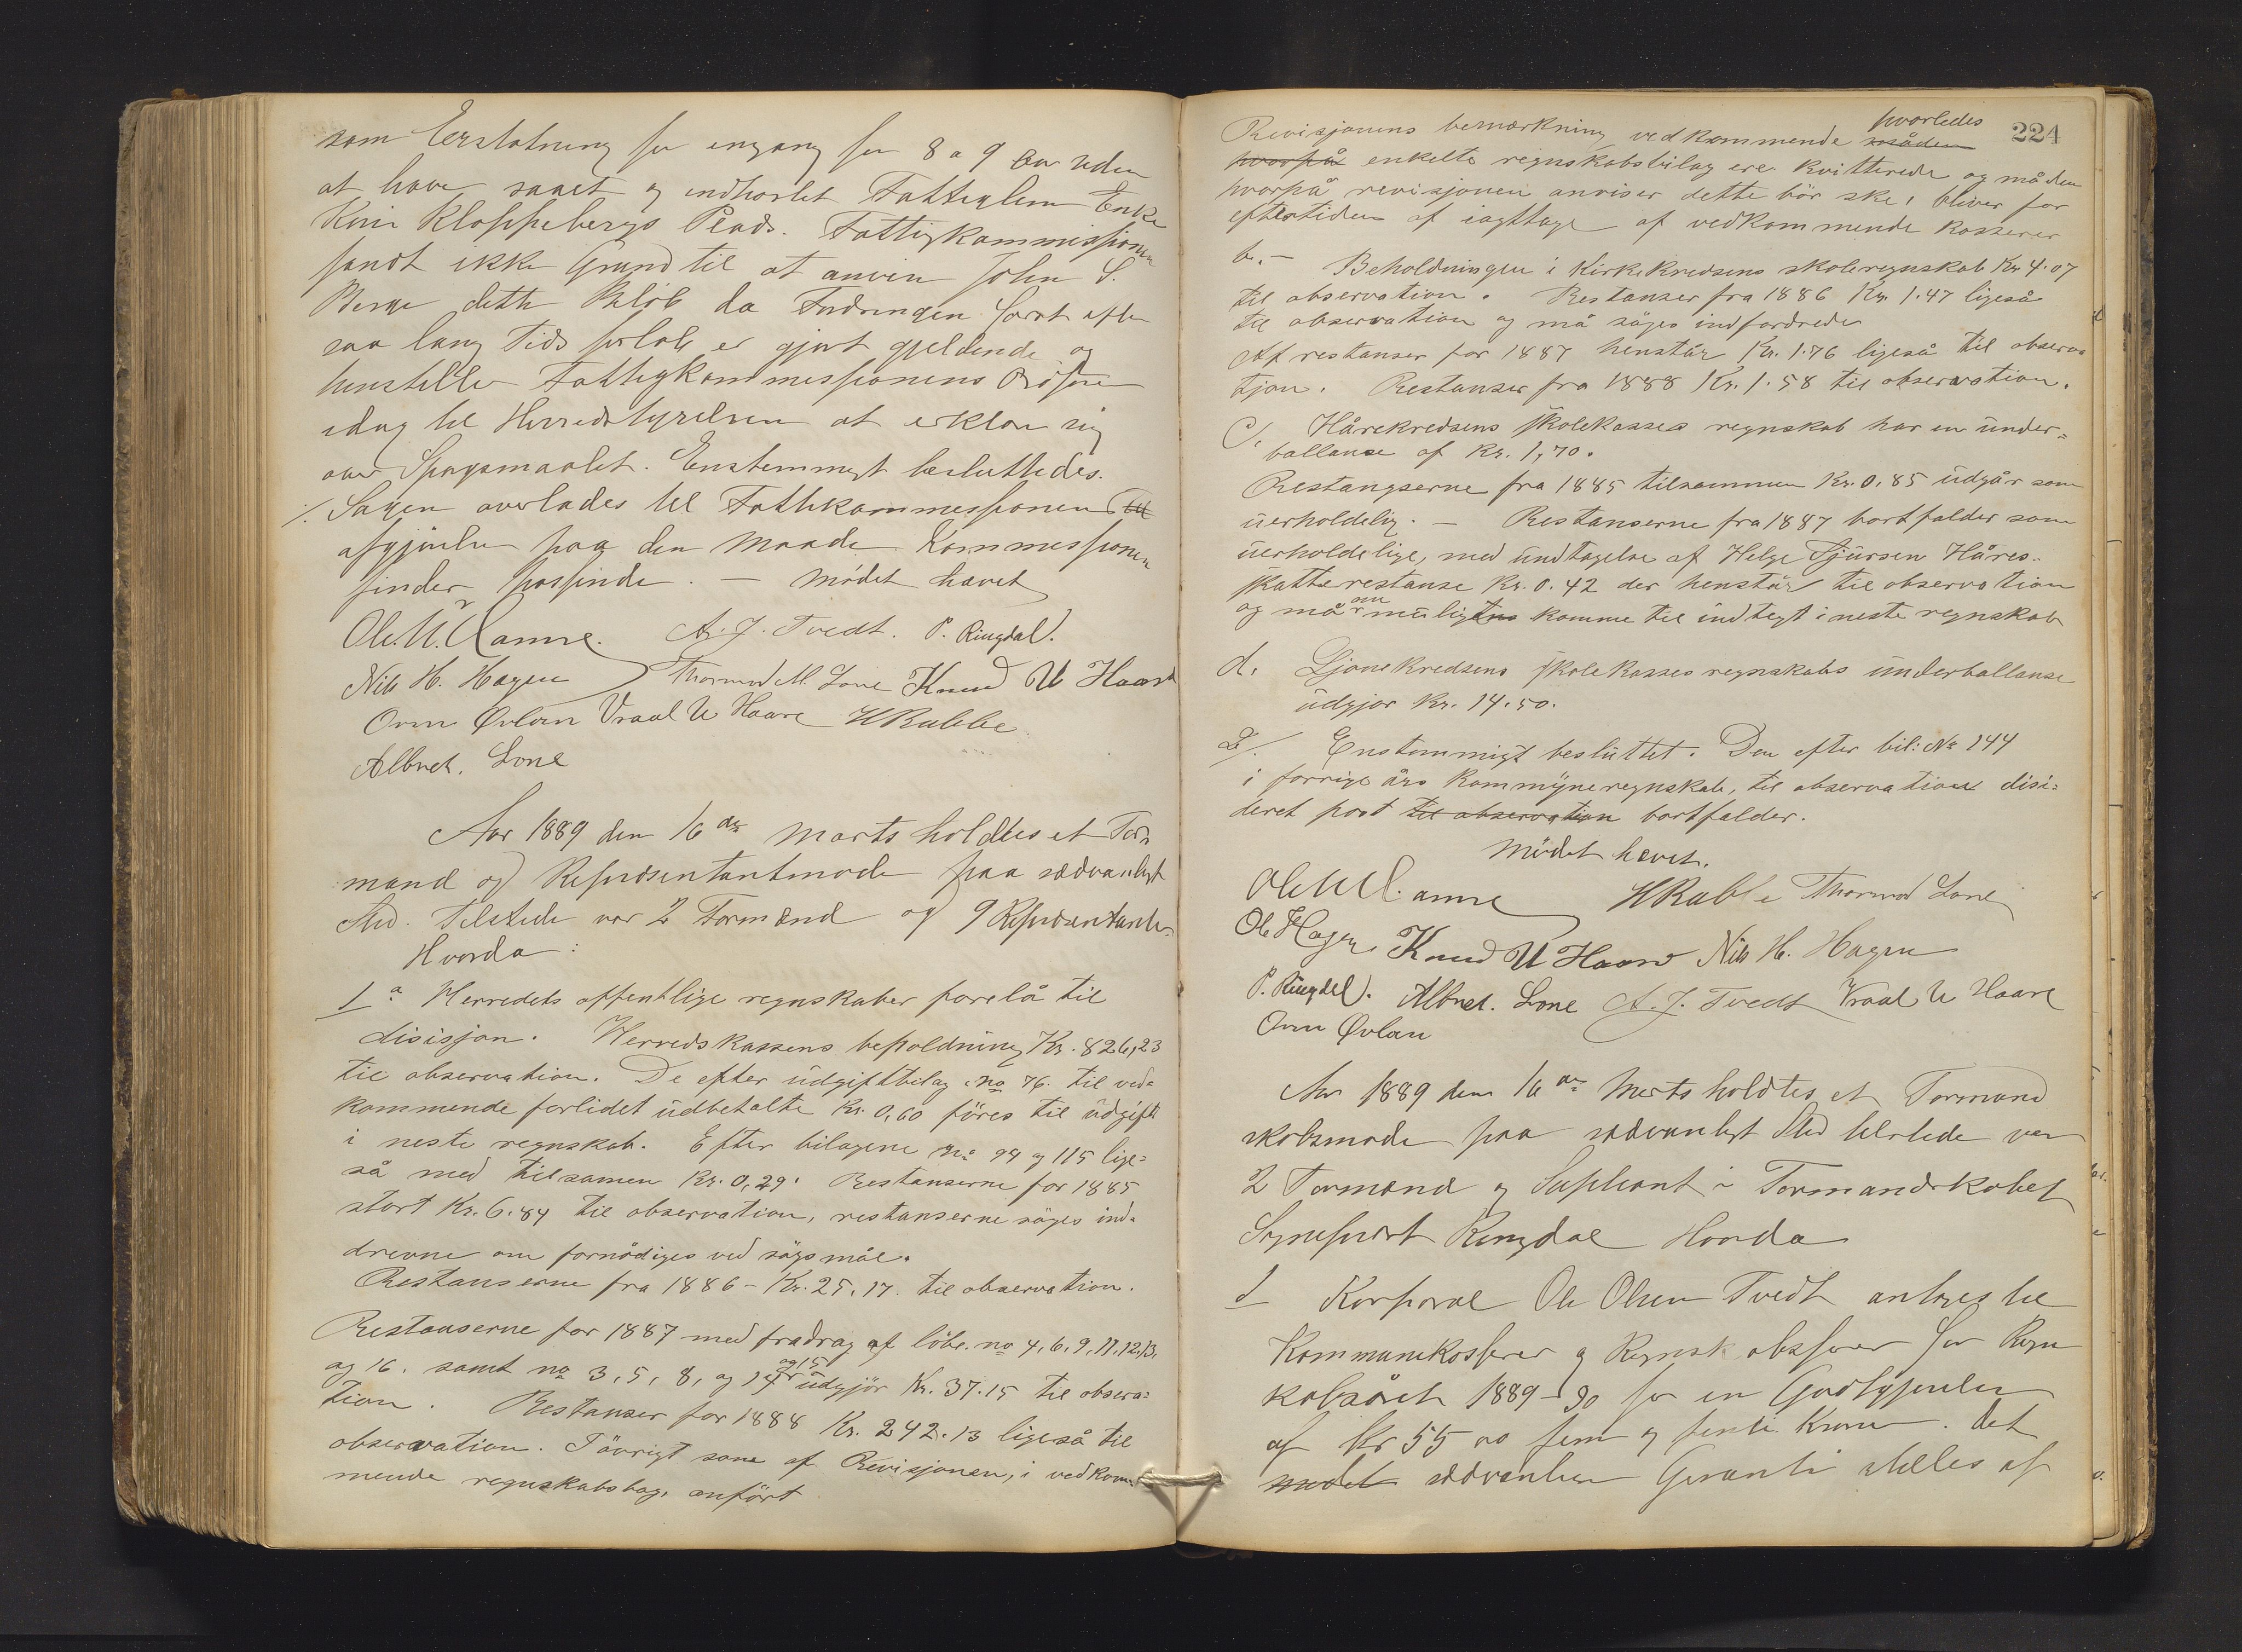 som Erstatning for engang for 8 a 9 Aar uden
at have saaet og indhøstet Fattiglem Enke
Kari Kloppebergs Plads. Fattigkommissionen
fandt ikke Grund til at anvise John S.
Berge dette Beløb da Fordringen først efter
saa lang Tids forløb er gjort gjeldende og
henstiller Fattigkommissionens
idag til Herredstyrelsen at erklære sig
over Spørgsmaalet. Enstemmigt besluttedes.
/. Sagen overlades til Fattikommissionen til
afgjørelse paa den Maade Kommissionen
finder passende. — Mødet hævet
Ole. N. Ramse. A. J. Tvedt. P. Ringdal.
Nils H. Hagen Thormod M. Lone Knud U Haare
Orm Øvlan Vraal U Haare H Rabbe
Albret. Lone
Aar 1889 den 16de Marts holdtes et For-
mand og Repræsentantmøde paa sædvanligt
Sted. Tilstede var 2 Formænd og 9 Repræsentanter
Hvorda:
1 a Herredets offentlige regnskaber forelå til
disisjon. Herredskassens beholdning Kr. 826,23
til observation. De efter udgiftbilag no 76. til ved-
kommende forlidet udbetalte Kr. 0,60 föres til udgift
i neste regnskab. Efter bilagene No 94 og 115 lige-
så med tilsamen Kr. 0,29. Restanserne for 1885
stort Kr. 6.84 til observation, restanserne söges ind-
drevne om fornödiges ved sögsmål.
Restanserne fra 1886 - Kr. 25.17. til observation.
Restanserne for 1887 med fradrag af löbe. no 4, 6, 9, 11, 12, 13,
og 16. samt no 3, 5, 8, og 14 og 15 udgjör Kr. 37.15 til observa-
tion. Restanser for 1888 Kr. 242.13 ligeså til
observation. I övrigt som af Revisjonen, i vedkom-
mende regnskabsbog, anfört
224
Revisjonens bemærkning vedkommende måden hvorledes
hvorpå enkelte regnskabsbilag ere kvitterede og måden
hvorpå revisjonen anviser dette bör ske, bliver for
eftertiden af iagttage af vedkommende kasserer
b. - Beholdningen i Kirkekredsens skoleregnskab Kr 4.07
til observation. Restanser fra 1886 Kr. 1.47 ligeså
til observation og må söges indfordrede
Af restanser for 1887 henstår Kr. 1.76 ligeså til observa
tjon. Restanser fra 1888 Kr. 1.58 til observation.
C. Hårekredsens skolekasses regnskab har en under-
ballanse af Kr. 1,70.
Restangserne fra 1885 tilsammen Kr. 0.85 udgår som
uerholdelig. — Restanserne fra 1887 bortfalder som
uerholdelige, med undtagelse af Helge Sjursen Håres
skatterestanse Kr. 0.42 der henstår til observation
og må om muligens komme til indtegt i neste regnskab
d. Ljonekredsens skolekasses regnskabs underballanse
udgjor Kr. 14.50.
2/. Enstemmigt besluttet. Den efter bil: No 144
i forrige års kommyneregnskab, til observation disi-
deret post til observation bortfalder.
Mödet hævet.
Ole N Ramse H Rabbe Thormod Lone
Ole Hagen Knud U Haare Nils H. Hagen
P. Ringdal. Albret. Lone A. J. Tvedt Vraal U Haare
Orm Øvlan
Aar 1889 den 16de Marts holdtes et Formand
skabsmøde paa sædvanligt Sted tilstede var
2 Formænd og Supleant i Formandskabet
Ringdal Hvorda
1 Korporal Ole Olsen Tvedt antages til
Kommunekasserer og Regnskabsfører for Regn
skabsåret 1889-90 for en Godtgjørelse
af Kr 55 00 fem og femti Kroner. det
mødet sædvanlige Garanti stilles af